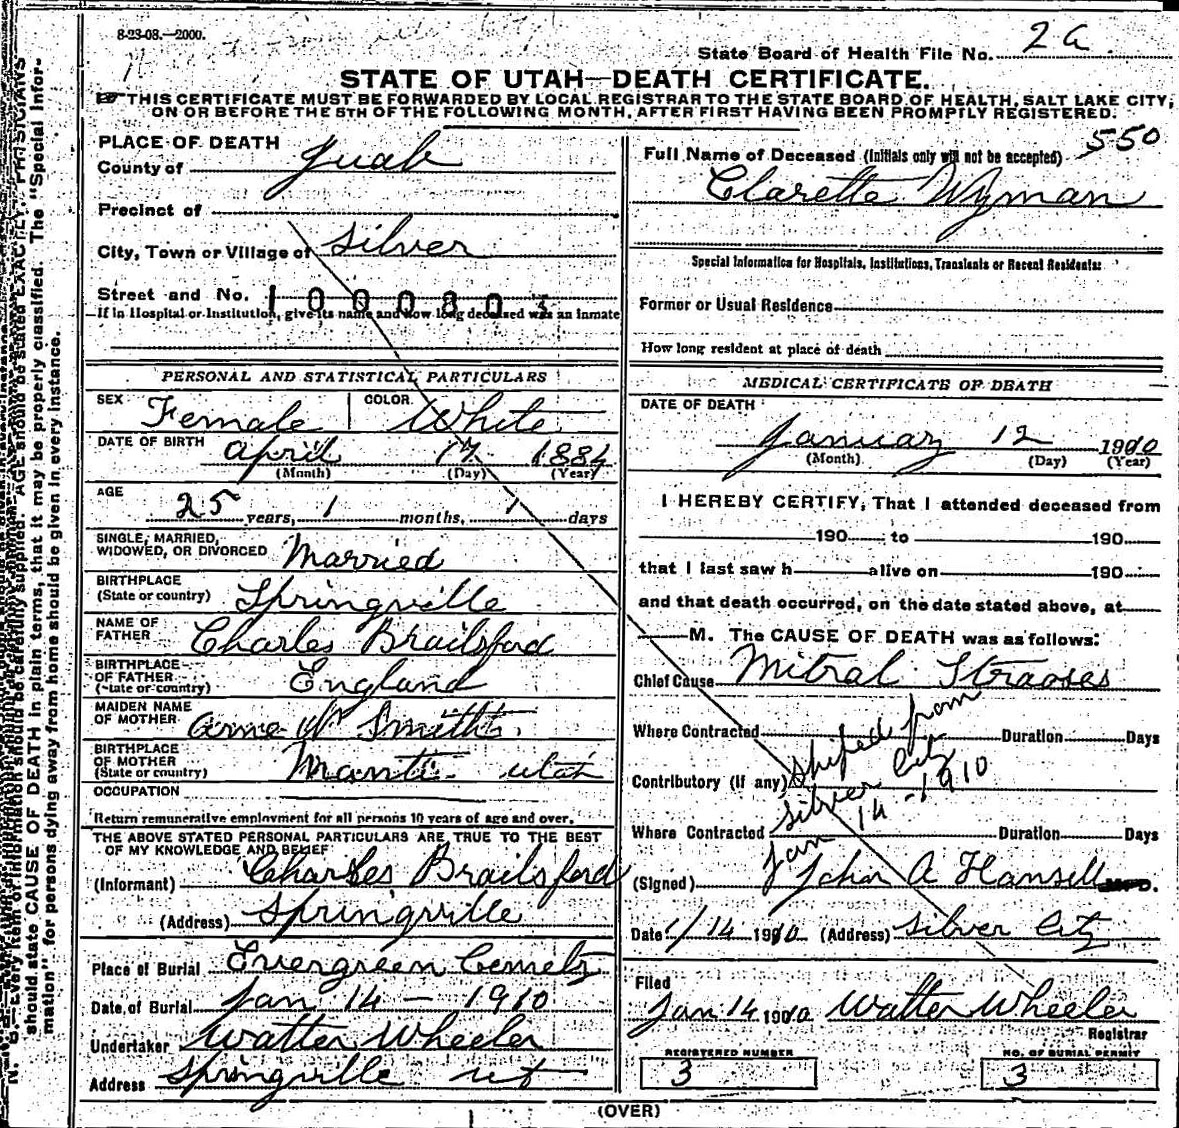 8-23-08.—2000.
State Board of Health File No. 2 a
STATE OF UTAH—DEATH CERTIFICATE.
THIS CERTIFICATE MUST BE FORWARDED BY LOCAL REGISTRAR TO THE STATE BOARD OF HEALTH, SALT LAKE CITY,
ON OR BEFORE THE 5TH OF THE FOLLOWING MONTH, AFTER FIRST HAVING BEEN PROMPTLY REGISTERED.
PLACE OF DEATH
County of Juab
Precinct of
City, Town or Village of Silver
Street and No. 1000803
If in Hospital or Institution, give its name and how long deceased was an inmate
PERSONAL AND STATISTICAL PARTICULARS
SEX Female COLOR White
DATE OF BIRTH April 17 1884
(Month) (Day) (Year)
AGE
25 years, 1 months, 1 days
SINGLE, MARRIED,
WIDOWED, OR DIVORCED Married
BIRTHPLACE
(State or country) Springville
NAME OF
FATHER Charles Brailsford
BIRTHPLACE
OF FATHER
(State or country) England
MAIDEN NAME
OF MOTHER Smith
BIRTHPLACE
OF MOTHER
(State or country) Manti Utah
OCCUPATION
Return remunerative employment for all persons 10 years of age and over.
THE ABOVE STATED PERSONAL PARTICULARS ARE TRUE TO THE BEST
OF MY KNOWLEDGE AND BELIEF
(Informant) Charles Brailsford
(Address) Springville
Place of Burial Evergreen Cemety
Date of Burial Jan 14 - 1910
Undertaker Walter Wheeler
Address Springville ut
550
Full Name of Deceased (Initials only will not be accepted)
Clarette Wyman
Special Information for Hospitals, Institutions, Transients or Recent Residents:
Former or Usual Residence
How long resident at place of death
MEDICAL CERTIFICATE OF DEATH
DATE OF DEATH
January 12 1910
(Month) (Day) (Year)
I HEREBY CERTIFY, That I attended deceased from
190 to 190
that I last saw h alive on 190
and that death occurred, on the date stated above, at
M. The CAUSE OF DEATH was as follows:
Chief Cause Mitral Straoses
Where Contracted Duration Days
Contributory (if any)
shiped from
Silver City
Jan 14-1910
Where Contracted Duration Days
(Signed) John A Hansell M.D.
Date 1/14 1910 (Address) Silver City
Filed
Jan 14 1910 Walter Wheeler
Registrar
REGISTERED NUMBER
3
NO. OF BURIAL PERMIT
3
(OVER)
should state CAUSE OF DEATH in plain terms, that it may be properly classified. The "Special Infor-
mation" for persons dying away from home should be given in every instance.